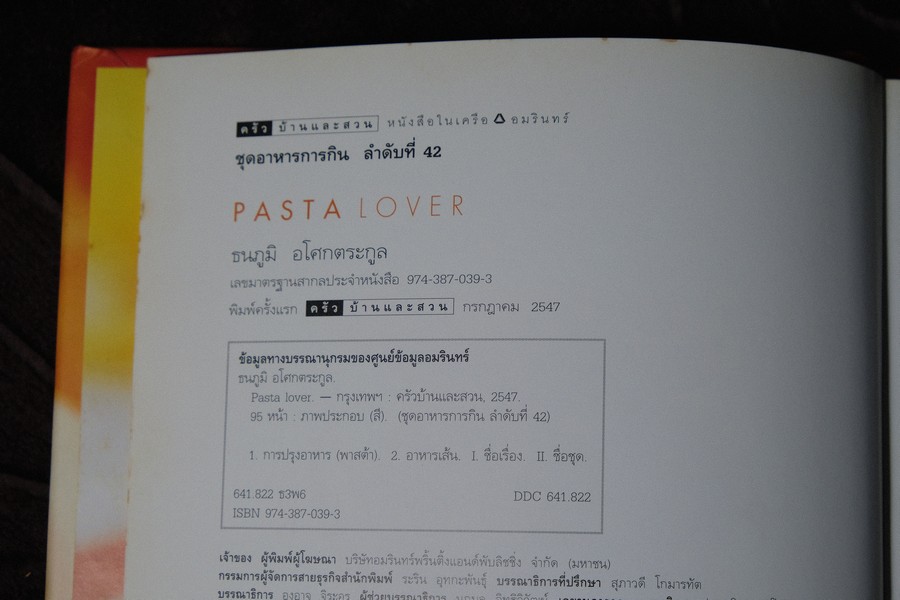 ครัว บ้านและสวน หนังสือในเครือ อมรินทร์
ชุดอาหารการกิน ลำดับที่ 42
PASTA LOVER
ธนภูมิ อโศกตระกูล
เลขมาตรฐานสากลประจำหนังสือ 974-387-039-3
พิมพ์ครั้งแรก ครัว บ้านและสวน กรกฎาคม 2547
ข้อมูลทางบรรณานุกรมของศูนย์ข้อมูลอมรินทร์
ธนภูมิ อโศกตระกูล.
Pasta lover. — กรุงเทพฯ : ครัวบ้านและสวน, 2547.
95 หน้า : ภาพประกอบ (สี). (ชุดอาหารการกิน ลำดับที่ 42)
1. การปรุงอาหาร (พาสต้า). 2. อาหารเส้น. I. ชื่อเรื่อง. II. ชื่อชุด.
641.822 ธ3พ6 DDC 641.822
ISBN 974-387-039-3
เจ้าของ ผู้พิมพ์ผู้โฆษณา บริษัทอมรินทร์พริ้นติ้งแอนด์พับลิชชิ่ง จำกัด (มหาชน)
กรรมการผู้จัดการสายธุรกิจสำนักพิมพ์ ระริน อุทกะพันธุ์ บรรณาธิการที่ปรึกษา สุภาวดี โกมารทัต
บรรณาธิการ องอาจ จิระอร ผู้ช่วยบรรณาธิการ